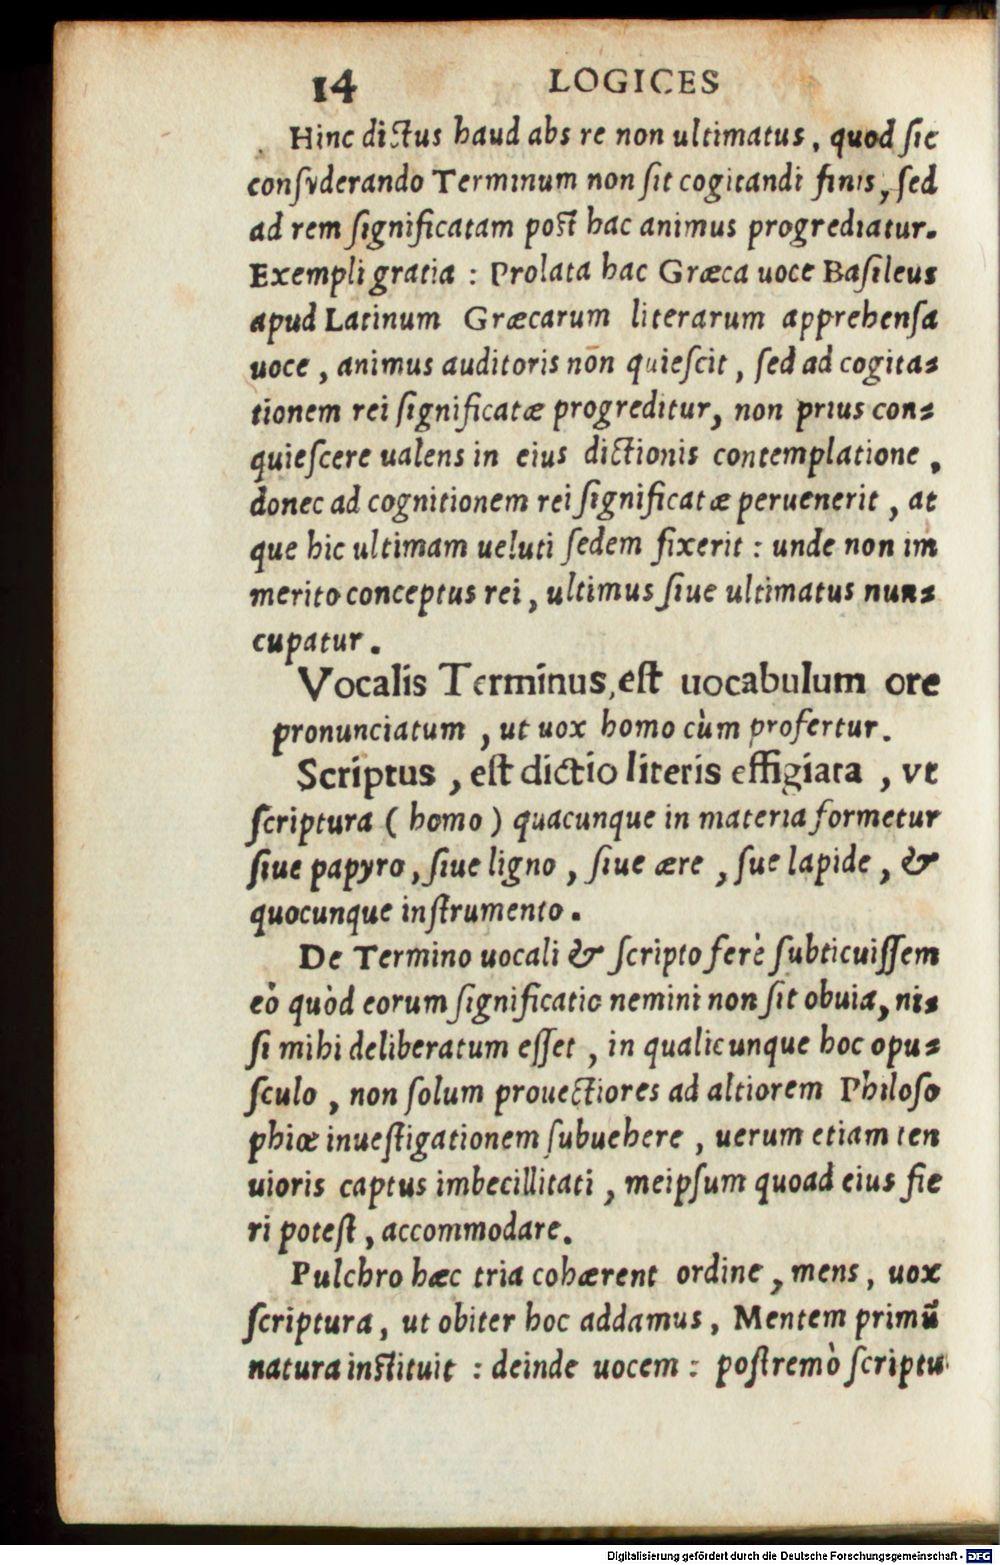 14 LOGICES
Hinc dictus haud abs re non ultimatus, quod sic
consyderando Terminum non sit cogitandi finis, sed
ad rem significatam post hac animus progrediatur.
Exempli gratia : Prolata hac Græca uoce Basileus
apud Latinum Græcarum literarum apprehensa
uoce, animus auditoris nōn quiescit, sed ad cogita=
tionem rei significatæ progreditur, non prius con=
quiescere ualens in eius dictionis contemplatione,
donec ad cognitionem rei significatæ peruenerit, at
que hic ultimam ueluti sedem fixerit : unde non im
merito conceptus rei, ultimus siue ultimatus nun=
cupatur.
Vocalis Terminus, est uocabulum ore
pronunciatum, ut uox homo cùm profertur.
Scriptus, est dictio literis effigiata, vt
scriptura ( homo ) quacunque in materia formetur
siue papyro, siue ligno, siue ære, sue lapide, &
quocunque instrumento.
De Termino uocali & scripto ferè subticuissem
eò quòd eorum significatio nemini non sit obuia, ni=
si mihi deliberatum esset, in qualicunque hoc opu=
sculo, non solum prouectiores ad altiorem Philoso
phiæ inuestigationem subuehere, uerum etiam ten
uioris captus imbecillitati, meipsum quoad eius fie
ri potest, accommodare.
Pulchro hæc tria cohærent ordine, mens, uox
scriptura, ut obiter hoc addamus, Mentem primũ
natura instituit : deinde uocem : postremò scriptu
Digitalisierung gefördert durch die Deutsche Forschungsgemeinschaft - DFG